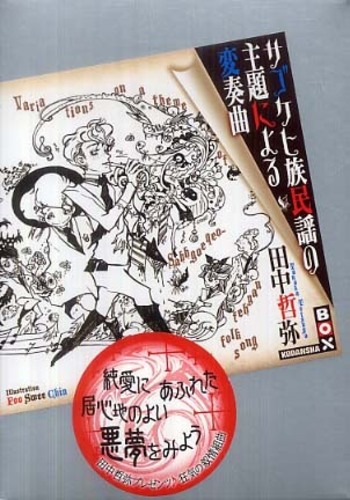 サゴケヒ族民謡の
主題による
変奏曲
田中哲弥
Variations on a theme
of
folk
song
BOX
KODANSHA
Illustration
Foo Swee Chin
純愛にあふれた
居心地のよい
悪夢をみよう
田中哲弥プレゼンツ、狂気の叙情組曲